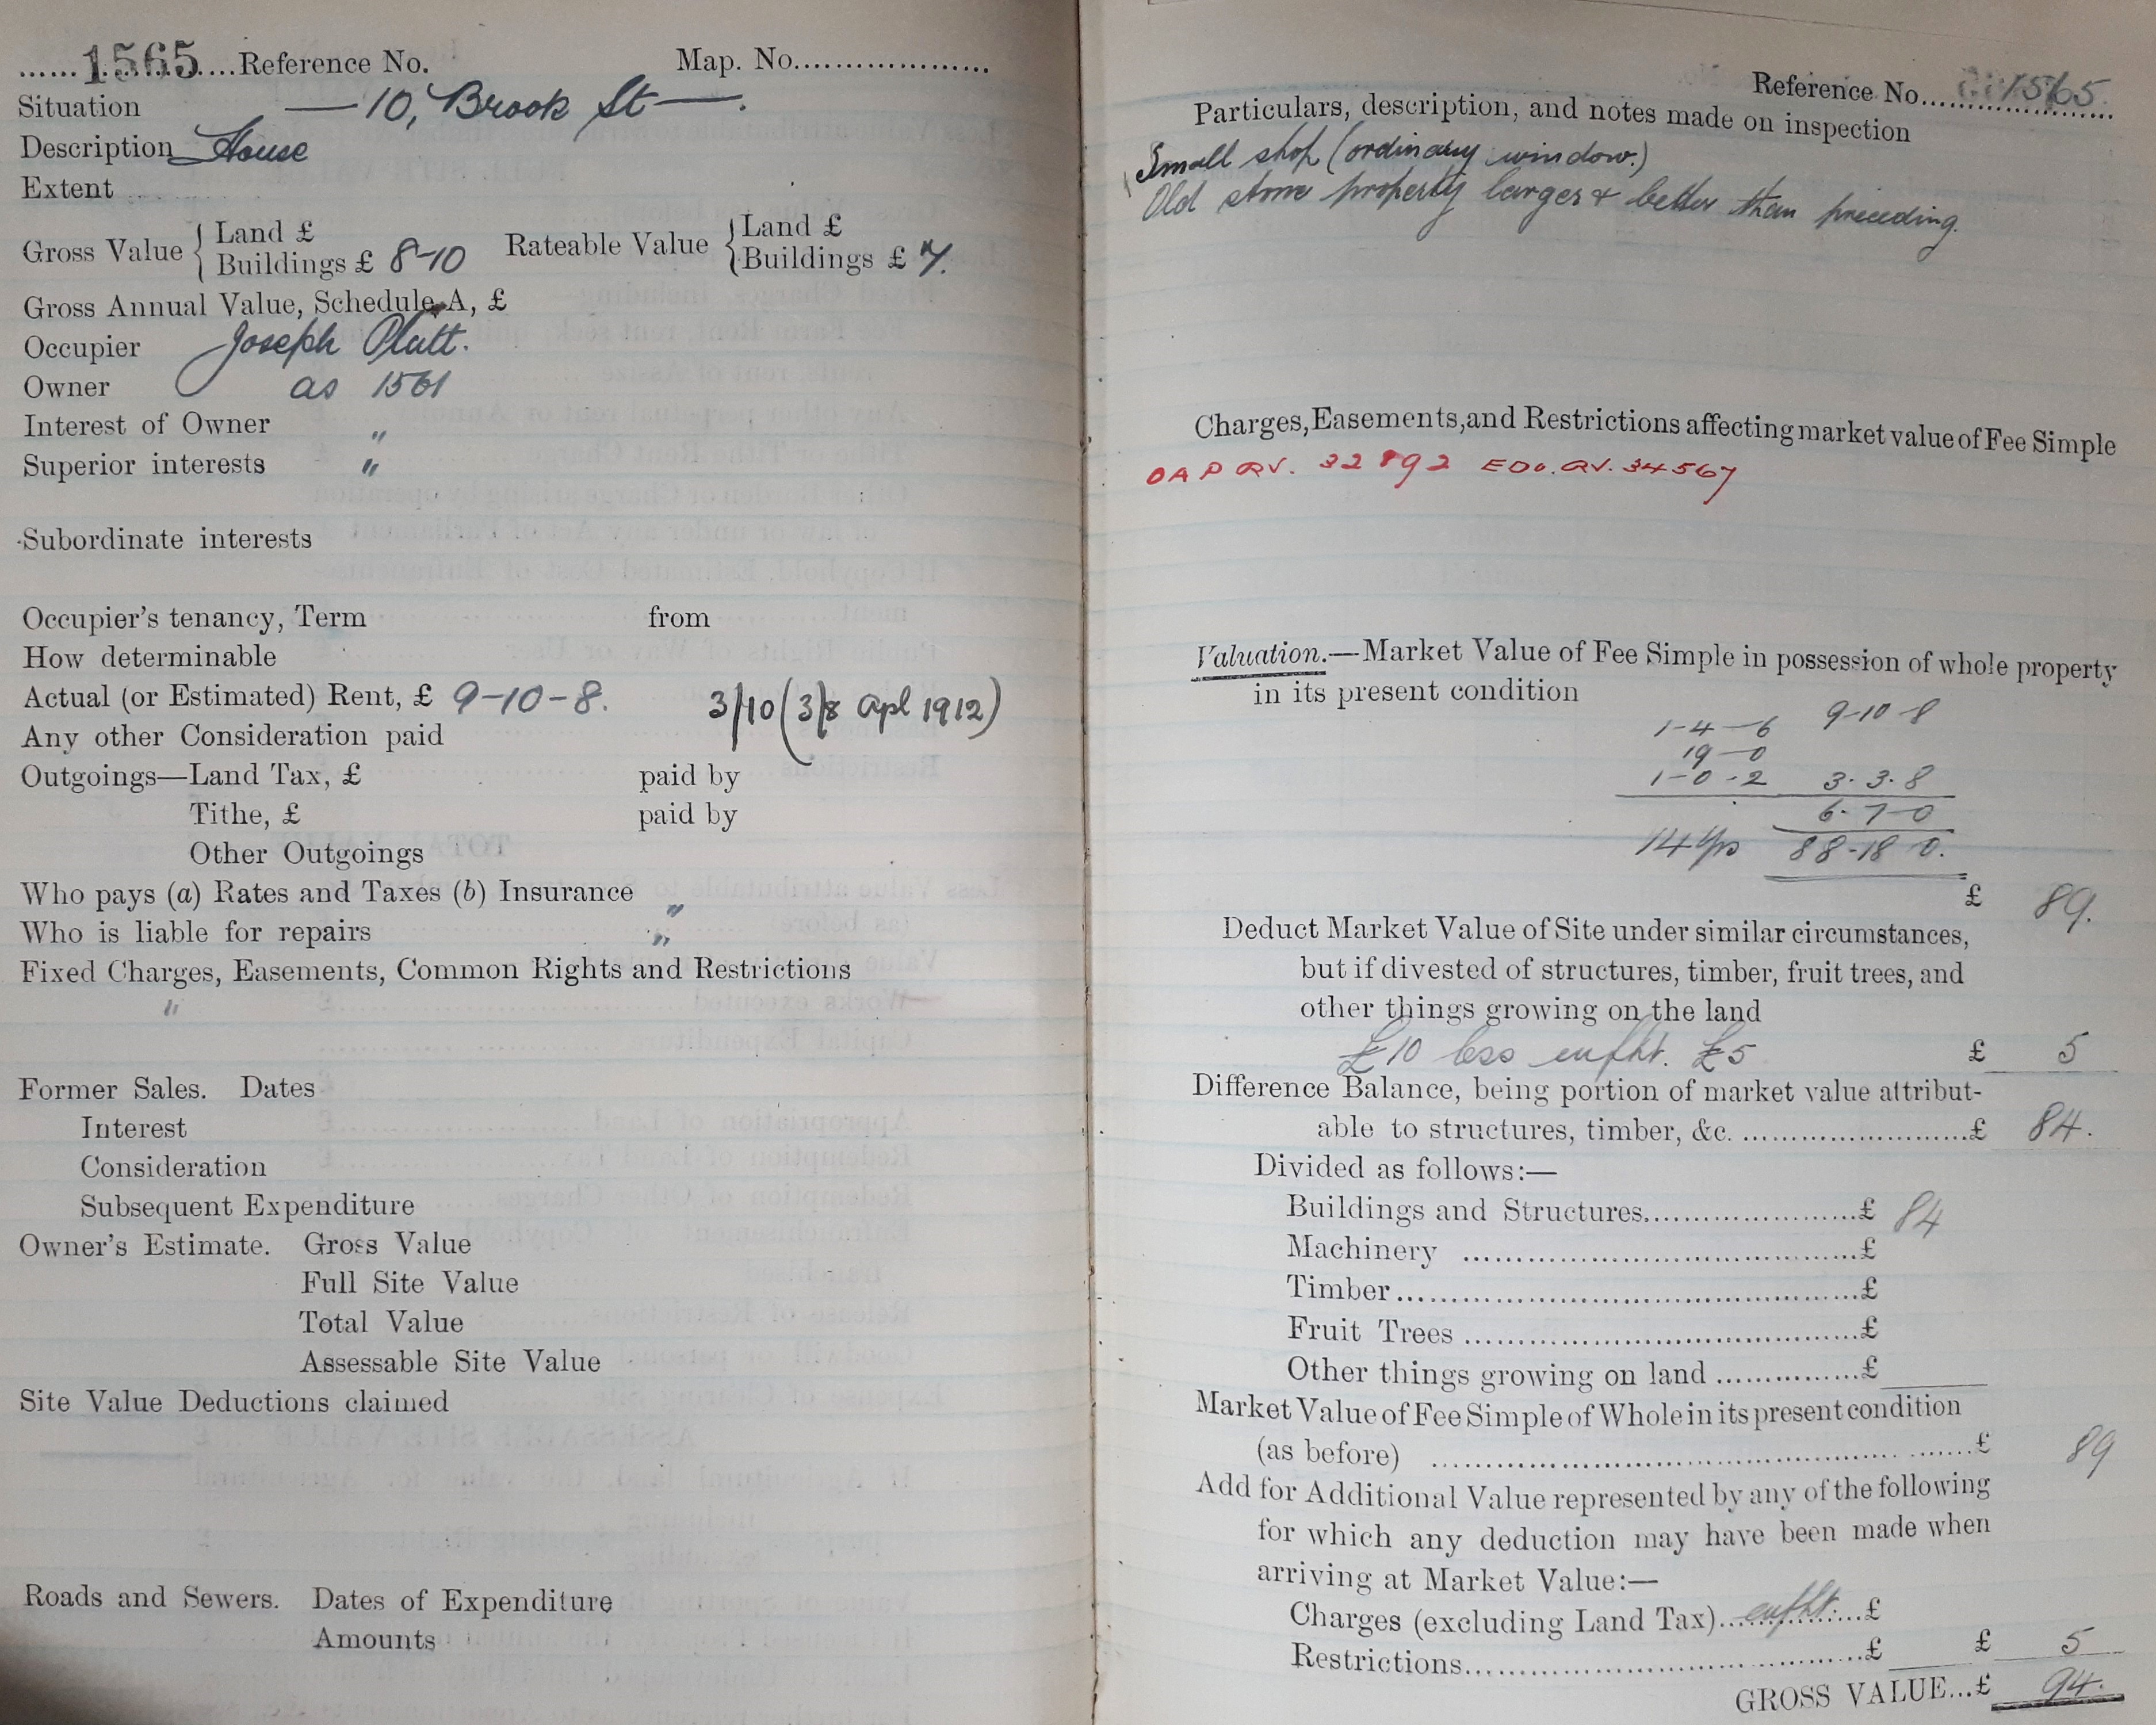 ......1565....Reference No. Map. No...................
Situation — 10, Brook St —.
Description House
Extent
Gross Value { Land £ Rateable Value { Land £
Buildings £ 8-10 Buildings £ 7.
Gross Annual Value, Schedule A, £
Occupier Joseph Platt.
Owner as 1561
Interest of Owner "
Superior interests "
Subordinate interests
Occupier's tenancy, Term from
How determinable
Actual (or Estimated) Rent, £ 9-10-8. 3/10 (3/8 Apl 1912)
Any other Consideration paid
Outgoings—Land Tax, £ paid by
Tithe, £ paid by
Other Outgoings
Who pays (a) Rates and Taxes (b) Insurance "
Who is liable for repairs "
Fixed Charges, Easements, Common Rights and Restrictions
"
Former Sales. Dates
Interest
Consideration
Subsequent Expenditure
Owner's Estimate. Gross Value
Full Site Value
Total Value
Assessable Site Value
Site Value Deductions claimed
Roads and Sewers. Dates of Expenditure
Amounts
Reference No. 1565.
Particulars, description, and notes made on inspection
Small shop (ordinary window.)
Old stone property larger & better than preceding.
Charges, Easements, and Restrictions affecting market value of Fee Simple
OAP QV. 32892 EDO. QV. 34567
Valuation.—Market Value of Fee Simple in possession of whole property
in its present condition
1-4-6 9-10-8
19-0
1-0-2 3.3.8
6-7-0
14 yp 88-18 0.
£ 89.
Deduct Market Value of Site under similar circumstances,
but if divested of structures, timber, fruit trees, and
other things growing on the land
£10 less enfht. £5 £ 5
Difference Balance, being portion of market value attribut-
able to structures, timber, &c. ..........................£ 84.
Divided as follows:—
Buildings and Structures........................£ 84
Machinery ............................................£
Timber..................................................£
Fruit Trees ...........................................£
Other things growing on land ................£
Market Value of Fee Simple of Whole in its present condition
(as before) ..........................................................£ 89
Add for Additional Value represented by any of the following
for which any deduction may have been made when
arriving at Market Value:—
Charges (excluding Land Tax)...enfht....£
Restrictions..........................................£ £ 5
GROSS VALUE...£ 94.